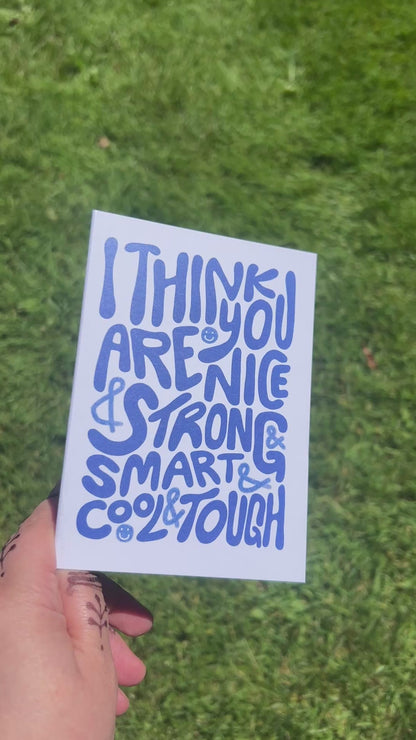 I THINK
YOU
ARE NICE
& STRONG &
SMART &
COOL & TOUGH